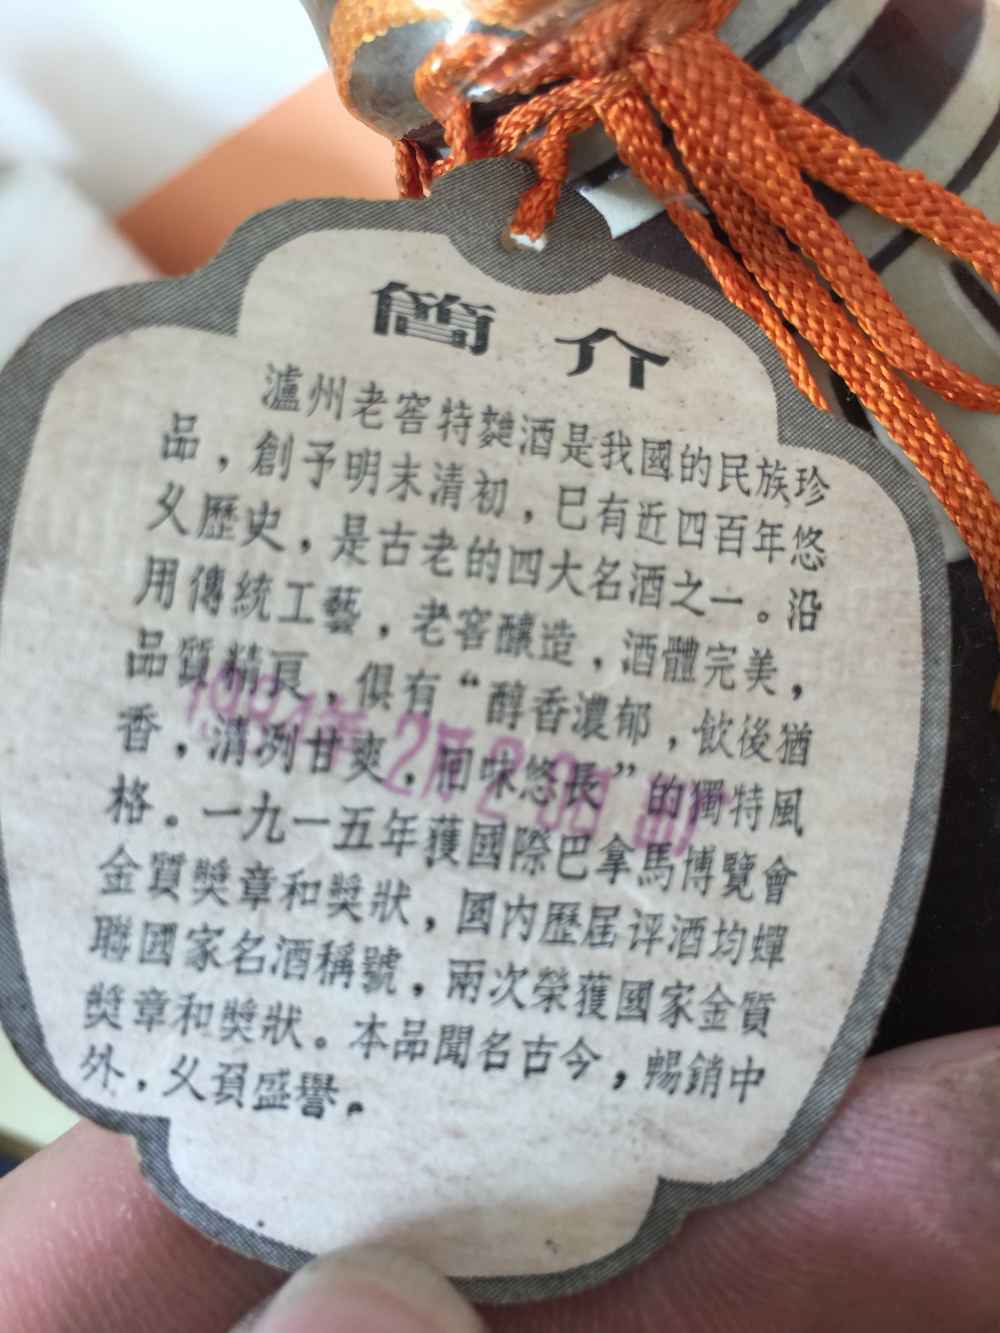 簡介
瀘州老窖特麯酒是我國的民族珍
品，創予明末清初，已有近四百年悠
乆歷史，是古老的四大名酒之一。沿
用傳統工藝，老窖釀造，酒體完美，
品質精良，俱有“醇香濃郁，飲後猶
香，清冽甘爽，回味悠長”的獨特風
格。一九一五年獲國際巴拿馬博覽會
金質獎章和獎狀，國内歷屆评酒均蟬
聯國家名酒稱號，兩次榮獲國家金質
獎章和獎狀。本品聞名古今，暢銷中
外，乆負盛譽。